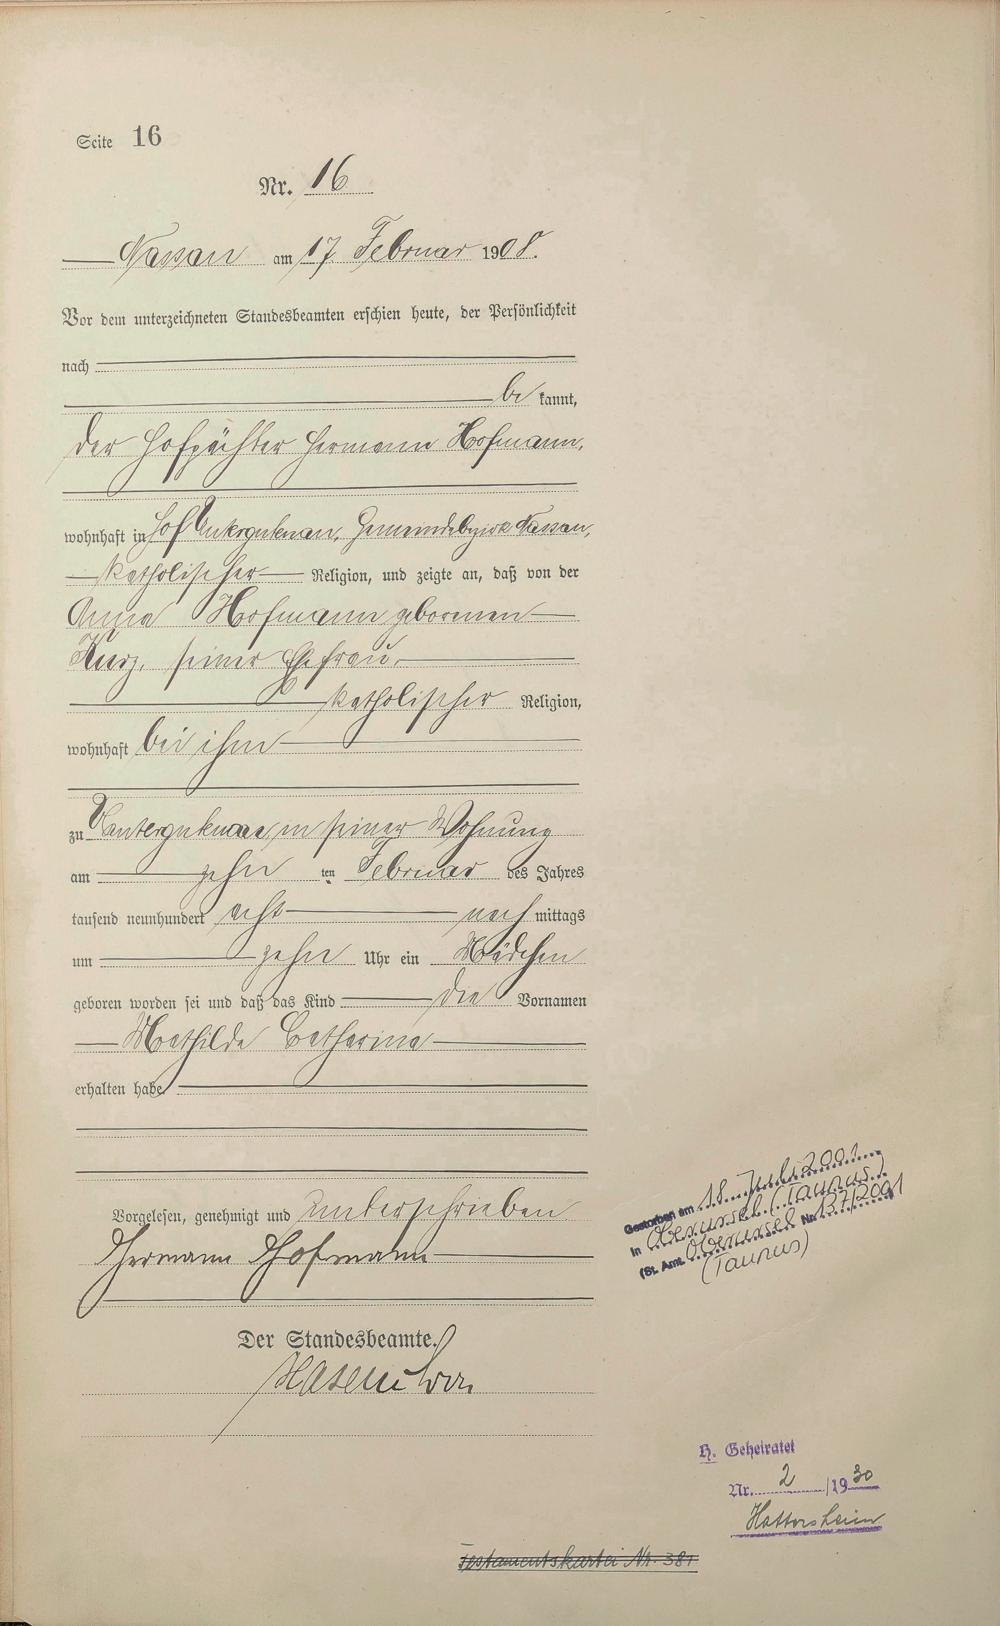 Seite 16
Nr. 16
Nassau am 17. Februar 1908.
Vor dem unterzeichneten Standesbeamten erschien heute, der Persönlichkeit
nach
be kannt,
der Hofpächter Hermann Hofmann,
wohnhaft in Hof Gemeindebezirk Nassau,
katholischer Religion, und zeigte an, daß von der
Anna Hofmann geborenen
Kurz, seiner Ehefrau,
katholischer Religion,
wohnhaft bei ihm
zu in seiner Wohnung
am zehn ten Februar des Jahres
tausend neunhundert acht nach mittags
um zehn Uhr ein Mädchen
geboren worden sei und daß das Kind die Vornamen
Mathilde Catharina
erhalten habe
Vorgelesen, genehmigt und unterschrieben
Hermann Hofmann
Der Standesbeamte.
Gestorben am 18. Juli 2001
in Oberursel (Taunus)
(St. Amt. Oberursel Nr. 137/2001
(Taunus)
H. Geheiratet
Nr. 2 /1930
Hattersheim
Testamentskartei Nr. 381